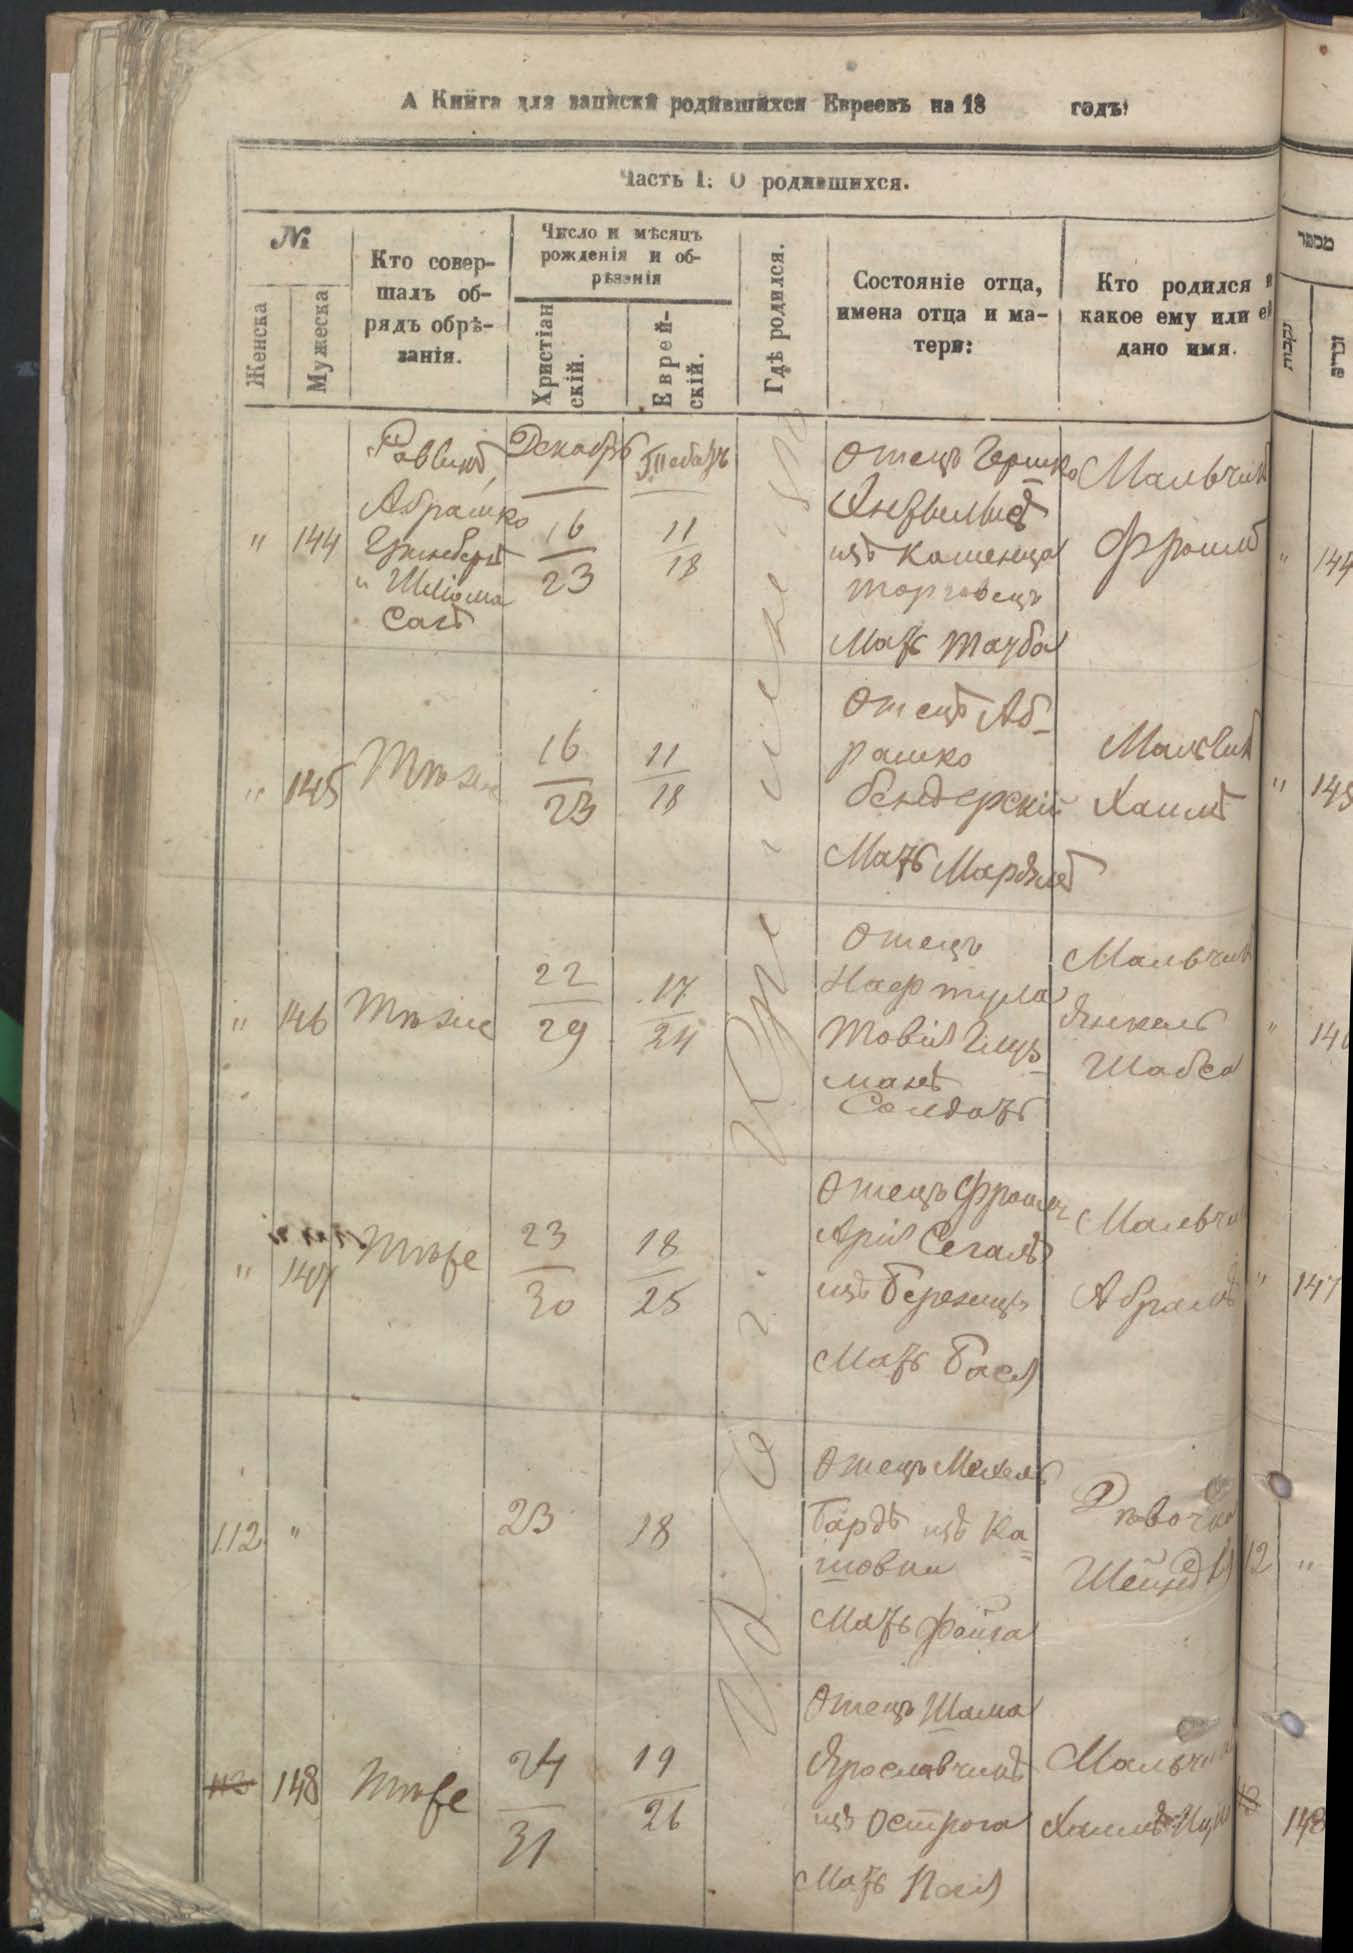 А Книга для записки родившихся Евреевъ на 18 годъ!
Часть I: О родившихся.
№
Женска
Мужеска
Кто совер-
шалъ об-
рядъ обрѣ-
занія.
Число и мѣсяцъ
рожденія и об-
рѣзанія
Христіан
скій.
Еврей-
скій.
Гдѣ родился.
Состояніе отца,
имена отца и ма-
тери:
Кто родился и
какое ему или ей
дано имя.
מספר
נקבות
זכרים
" 144
Раввинъ
Абрашко
Гринбергъ
и Шлiома
Сасъ
Декабрь
16
23
Тебатъ
11
18
Отецъ Гершко
изъ Каменца
торговецъ
Мать Тауба
Мальчикъ
Фроимъ
" 144
" 145
Тѣже
16
23
11
18
Отецъ Аб-
рашко
Бендерскій
Мать
Мальчикъ
Хаимъ
" 145
" 146
Тѣже
22
29
17
24
Отецъ
Нафтула
Товія Гиц-
манъ
Солдатъ
Мальчикъ
Янкель
Шабса
"
" 147
Тѣже
23
30
18
25
Отецъ Фроимъ
Арія Сегалъ
изъ
Мать Бася
Мальчи
Абрамъ
" 147
112 "
23
18
Отецъ Мехель
Бардъ изъ Ка-
шовки
Мать Фейга
Дѣвочка
Шейндля
12 "
148
Тѣже
24
31
19
26
Отецъ Шама
Ярославчикъ
изъ Острога
Мать Песя
Мальчи
Хаимъ
148